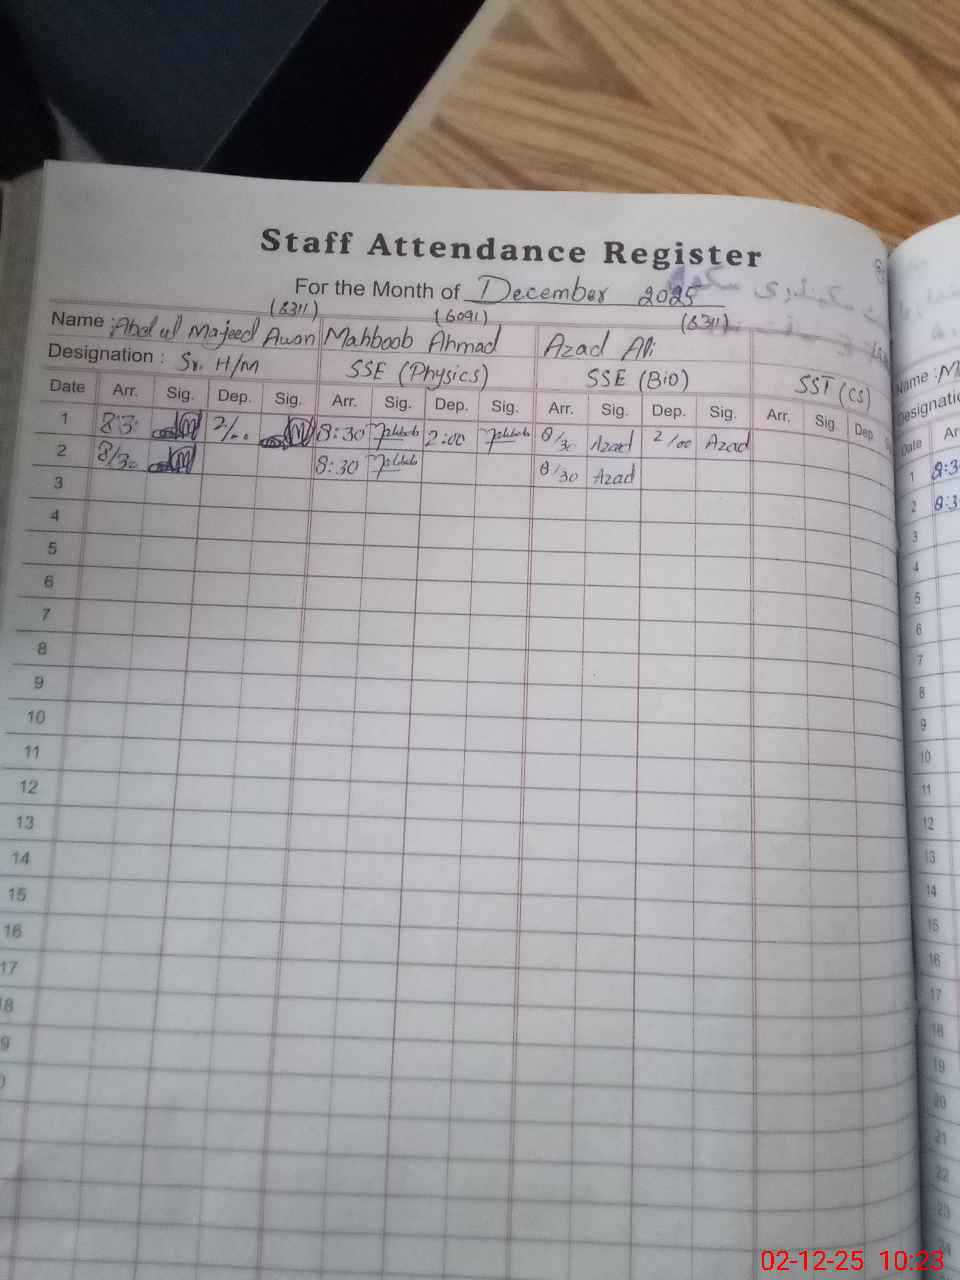 Staff Attendance Register
For the Month of December 2025
(8311) (6091) (8311)
Name : Abdul Majeed Awan Mahboob Ahmad Azad Ali
Designation : Sr. H/M SSE (Physics) SSE (BiO) SST (CS)
Date Arr. Sig. Dep. Sig. Arr. Sig. Dep. Sig. Arr. Sig. Dep. Sig. Arr. Sig. Dep.
1 8:3 2/00 8:30 2:00 8/30 Azad 2/00 Azad
2 8/30 8:30 8/30 Azad
3
4
5
6
7
8
9
10
11
12
13
14
15
16
17
Name : M
Date
1 8:3
2 8:3
3
4
5
6
7
8
9
10
11
12
13
14
15
16
17
18
19
20
21
22
23
24
02-12-25 10:23